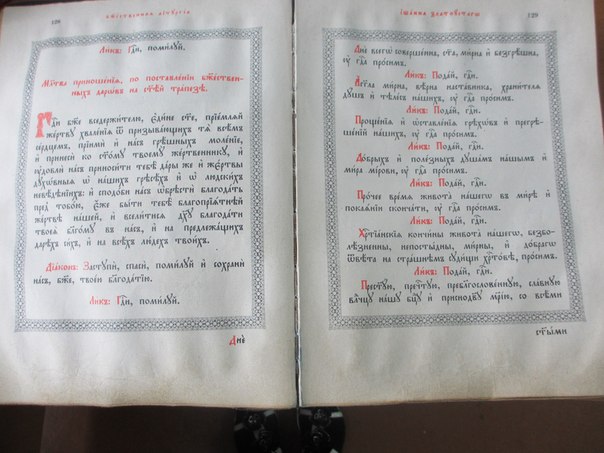 128
БЖ҃ЕСТВЕННАѦ ЛІТꙋРГІ́А
Ли́къ: Гдⷭ҇и, поми́лꙋй.
Мл҃тва приноше́нїѧ, по поставле́нїи бжⷭ҇твен-
ныхъ дарѡ́въ на ст҃ѣ́й трапе́зѣ.
Гдⷭ҇и бж҃е вседержи́телю, є҆ди́не ст҃е, прїе́млѧй
же́ртвꙋ хвале́нїѧ ѿ призыва́ющихъ тѧ̀ всѣ́мъ
се́рдцемъ, прїимѝ и҆ на́съ грѣ́шныхъ моле́нїе,
и҆ принесѝ ко ст҃о́мꙋ твоемꙋ̀ же́ртвенникꙋ, и҆
ᲂу҆до́вли на́съ приноси́ти тебѣ̀ да́ры же и҆ жє́ртвы
дꙋхѡ́вныѧ ѡ҆ на́шихъ грѣсѣ́хъ и҆ ѡ҆ людски́хъ
невѣ́дѣнїихъ: и҆ сподо́би на́съ ѡ҆брѣстѝ благода́ть
пред̾ тобо́ю, є҆́же бы́ти тебѣ̀ благопрїѧ́тнѣй
же́ртвѣ на́шей, и҆ всели́тисѧ дх҃ꙋ благода́ти
твоеѧ̀ бл҃го́мꙋ въ на́съ, и҆ на предлежа́щихъ
дарѣ́хъ си́хъ, и҆ на всѣ́хъ лю́дехъ твои́хъ.
Дїа́конъ: Застꙋпѝ, спасѝ, поми́лꙋй и҆ сохранѝ
на́съ, бж҃е, твое́ю благода́тїю.
Ли́къ: Гдⷭ҇и, поми́лꙋй.
Днѐ
І҆ѠА́ННА ЗЛАТОꙋ́СТАГѠ
129
Днѐ всегѡ̀ соверше́нна, ст҃а, ми́рна и҆ безгрѣ́шна,
ᲂу҆ гдⷭ҇а про́симъ.
Ли́къ: Пода́й, гдⷭ҇и.
А҆́гг҃ла ми́рна, вѣ́рна наста́вника, храни́телѧ
дꙋ́шъ и҆ тѣле́съ на́шихъ, ᲂу҆ гдⷭ҇а про́симъ.
Ли́къ: Пода́й, гдⷭ҇и.
Проще́нїѧ и҆ ѡ҆ставле́нїѧ грѣхѡ́въ и҆ прегрѣ-
ше́нїй на́шихъ, ᲂу҆ гдⷭ҇а про́симъ.
Ли́къ: Пода́й, гдⷭ҇и.
До́брыхъ и҆ поле́зныхъ дꙋша́мъ на́шымъ и҆
ми́ра мі́рови, ᲂу҆ гдⷭ҇а про́симъ.
Ли́къ: Пода́й, гдⷭ҇и.
Про́чее вре́мѧ живота̀ на́шегѡ въ ми́рѣ и҆
покаѧ́нїи сконча́ти, ᲂу҆ гдⷭ҇а про́симъ.
Ли́къ: Пода́й, гдⷭ҇и.
Хрⷭ҇тїа́нскїѧ кончи́ны живота̀ на́шегѡ, без̾бо-
лѣ́зненны, непосты́дны, ми́рны, и҆ до́брагѡ
ѿвѣ́та на стра́шнѣмъ сꙋди́щи хрⷭ҇то́вѣ, про́симъ.
Ли́къ: Пода́й, гдⷭ҇и.
Прест҃ꙋ́ю, пречⷭ҇тꙋю, пребл҃гослове́ннꙋю, сла́внꙋю
влⷣчцꙋ на́шꙋ бцⷣꙋ и҆ приснодв҃ꙋ мр҃і́ю, со всѣ́ми
ст҃ы́ми